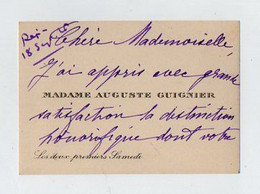 18 Sep
Chère Mademoiselle,
J'ai appris avec grande
MADAME AUGUSTE GUIGNIER
satisfaction la distinction
honorifique dont votre
Les deux premiers Samedi